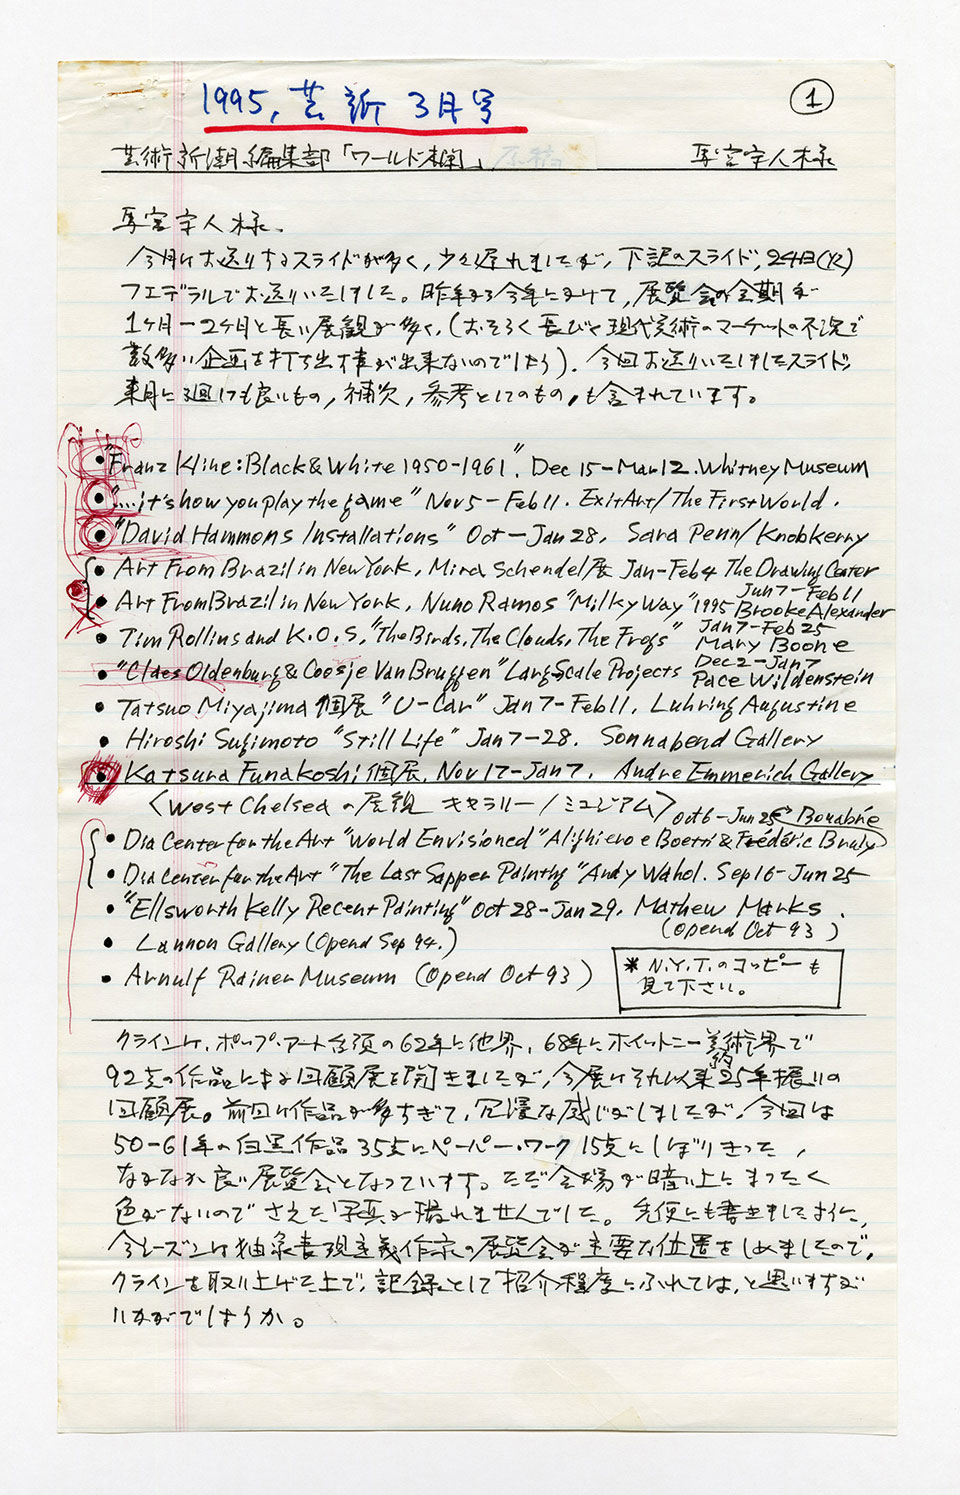 1995, 芸新 3月号
①
芸術新潮編集部「ワールド欄」 原稿 馬宮守人様
馬宮守人様、
今月はお送りするスライドが多く、少々遅れましたが、下記のスライド、24日(火)
フェデラルでお送りいたしました。昨年から今年にかけて、展覧会の会期が
1ヶ月ー2ヶ月と長い展観が多く、(おそらく長びく現代美術のマーケットの不況で
数多い企画を打ち出す事が出来ないのでしょう)。今回お送りいたしましたスライド、
来月に廻しても良いもの、補欠、参考としてのもの、も含まれています。
• "Franz Kline: Black & White 1950-1961". Dec 15-Mar 12. Whitney Museum
• "....it's how you play the game" Nov 5-Feb 11. Exit Art/The First World.
• "David Hammons Installations" Oct-Jan 28, Sara Penn/Knobkerry
• Art From Brazil in New York, Mira Schendel展 Jan-Feb 4 The Drawing Center
• Art From Brazil in New York, Nuno Ramos "Milky Way" 1995 Jun 7-Feb 11 Brooke Alexander
• Tim Rollins and K.O.S, "The Birds, The Clouds, The Frogs" Jan 7-Feb 25 Mary Boone
• "Claes Oldenburg & Coosje Van Bruggen" Large Scale Projects Dec 2-Jan 7 Pace Wildenstein
• Tatsuo Miyajima 個展 "U-Car" Jan 7-Feb 11, Luhring Augustine
• Hiroshi Sugimoto "Still Life" Jan 7-28. Sonnabend Gallery
• Katsura Funakoshi 個展, Nov 17-Jan 7. Andre Emmerich Gallery
〈West Chelsea の展観 ギャラリー/ミュージアム〉
• Dia Center for the Art "World Envisioned" Alighiero e Boetti & Frédéric Bruly Bouabrie Oct 6-Jun 25
• Dia Center for the Art "The Last Sapper Painting" Andy Wahol. Sep 16-Jun 25
• "Ellsworth Kelly Recent Painting" Oct 28-Jan 29, Mathew Marks. (Opend Oct 93)
• Lannon Gallery (Opend Sep 94.)
• Arnulf Rainer Museum (Opend Oct 93)
* N.Y.T.のコッピーも
見て下さい。
クラインは、ポップ・アート台頭の62年に他界、68年にホイットニー美術館で
92点の作品による回顧展を開きましたが、今展はそれ以来約25年振りの
回顧展。前回は作品が多すぎて、冗漫な感じがしましたが、今回は
50-61年の白黒作品35点にペーパー・ワーク15点にしぼりきった、
なかなか良い展覧会となっています。ただ会場が暗い上にまったく
色がないのでさえた写真が撮れませんでした。先便にも書きましたように、
今シーズンは抽象表現主義作家の展覧会が主要な位置をしめましたので、
クラインを取り上げた上で、記録として紹介程度にふれては、と思いますが
いかがでしょうか。